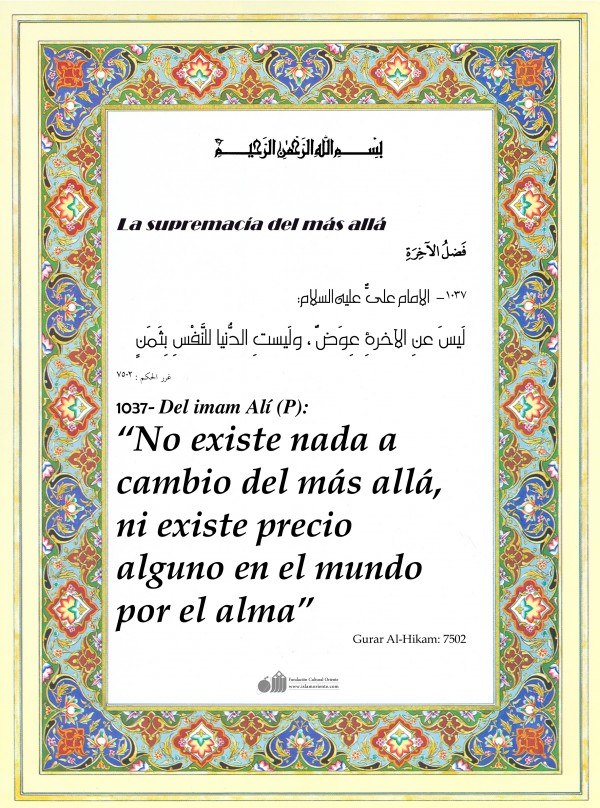 بِسْمِ اللهِ الرَّحْمٰنِ الرَّحِيمِ
La supremacía del más allá
فَضلُ الآخِرَةِ
١٠٣٧– الإمام عليٌّ عليه السلام:
لَيسَ عنِ الآخرةِ عِوَضٌ ، ولَيستِ الدُّنيا للنَّفْسِ بِثَمَنٍ
غرر الحكم : ٧٥٠٢
1037- Del imam Alí (P):
“No existe nada a
cambio del más allá,
ni existe precio
alguno en el mundo
por el alma”
Gurar Al-Hikam: 7502
Fundación Cultural Oriente
www.islamoriente.com